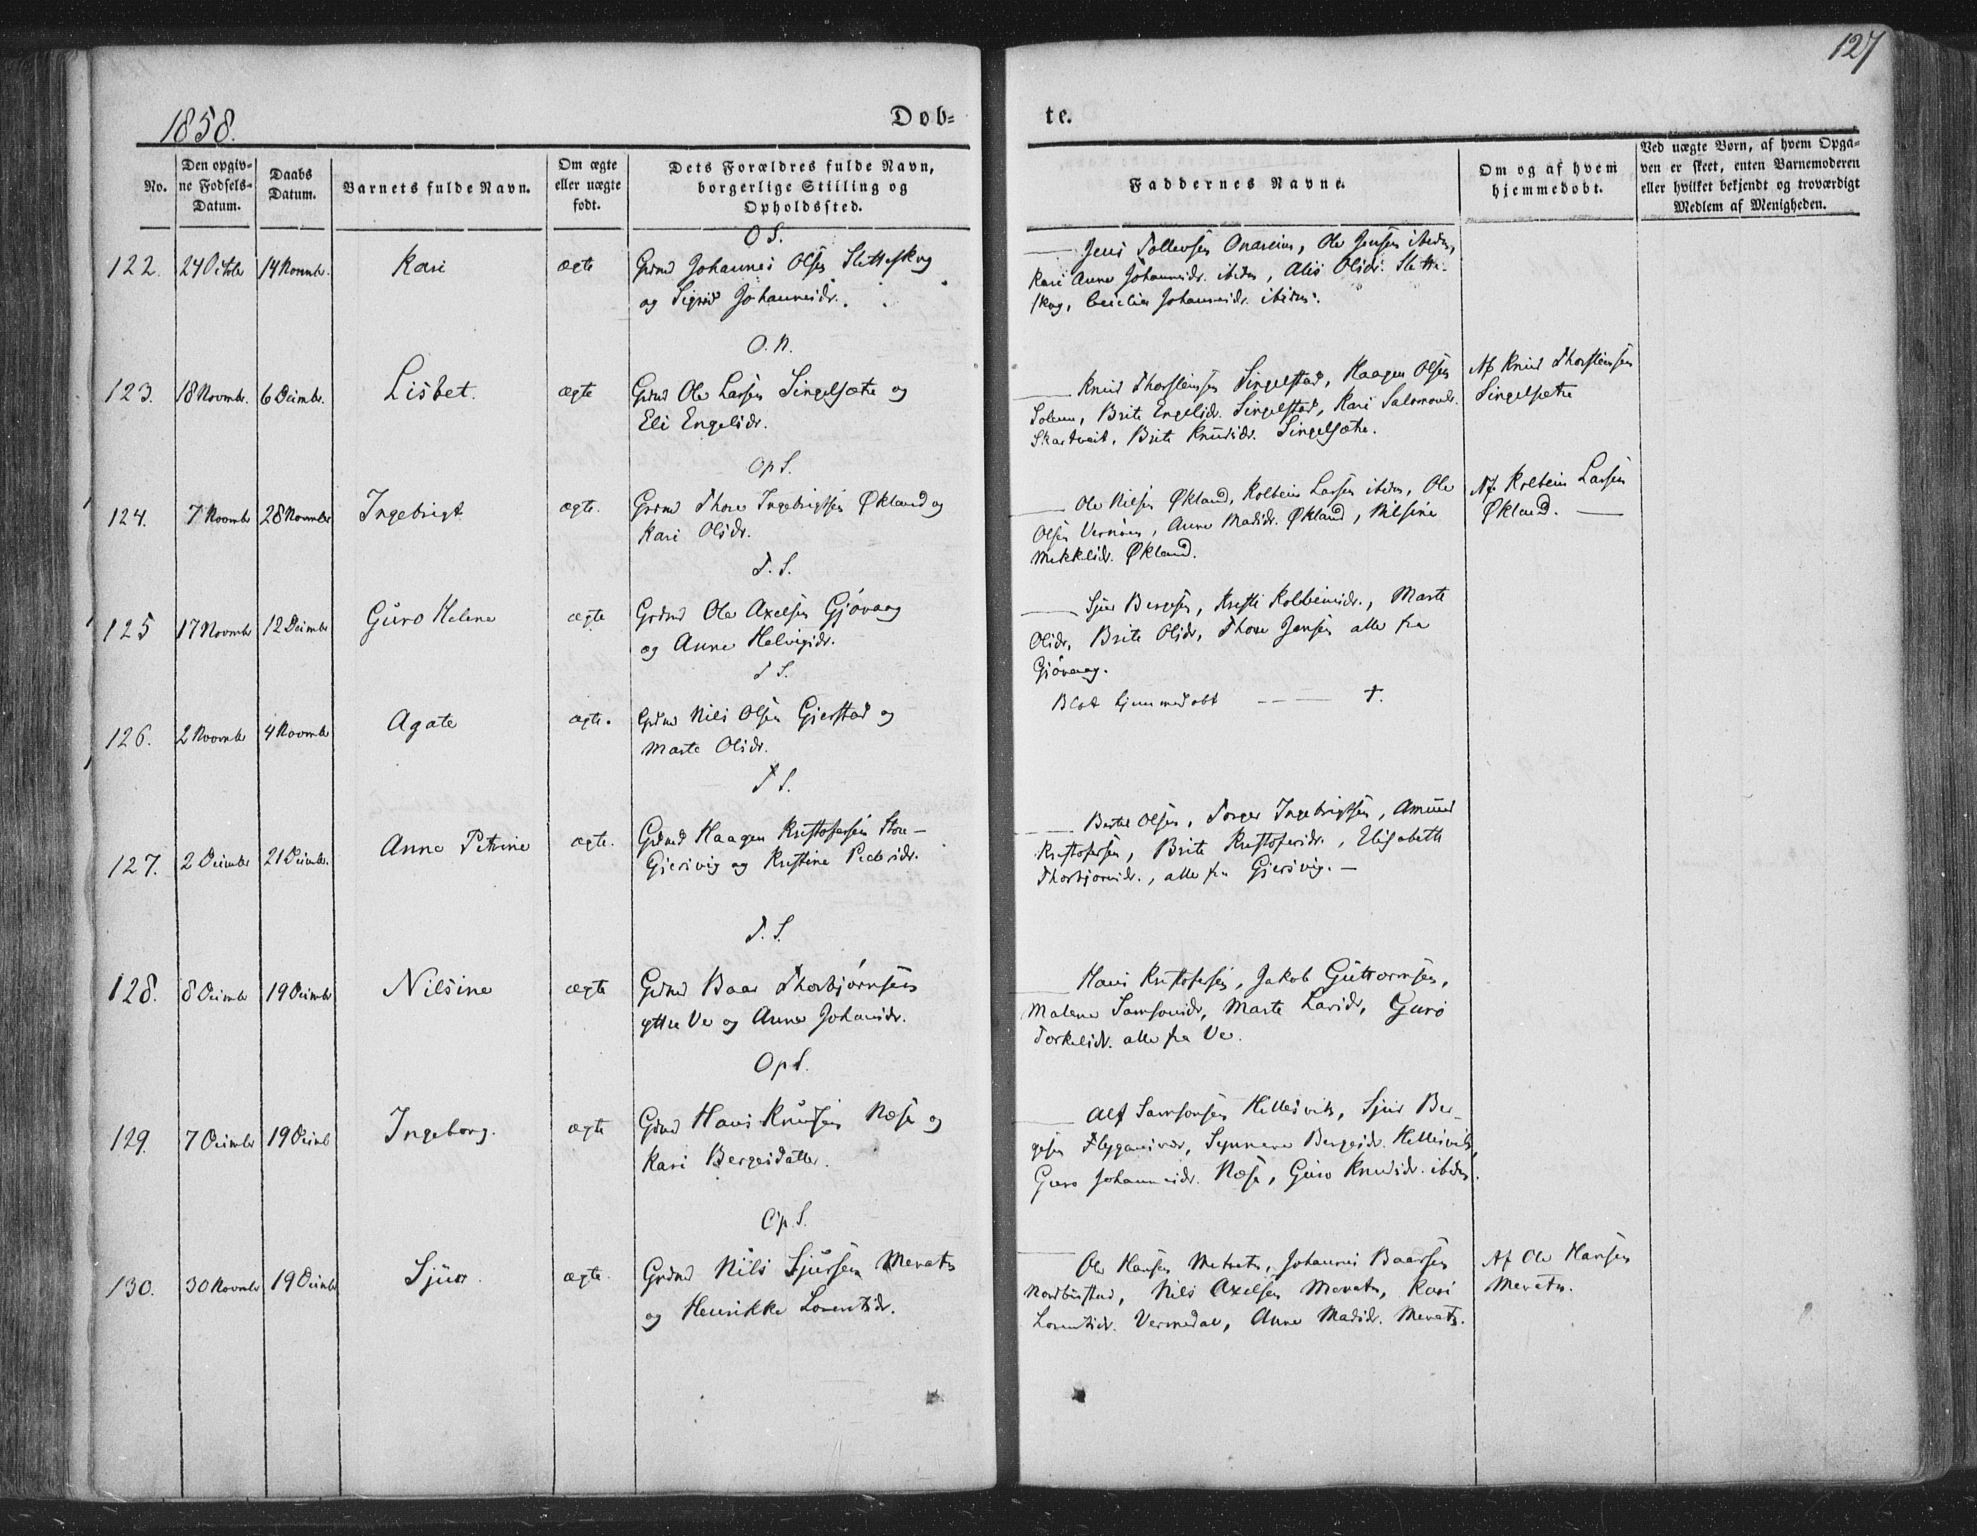 127
1858.
Døb=
te.
No.
Den opgiv=
ne Fødsels=
Datum.
Daabs
Datum.
Barnets fulde Navn.
Om ægte
eller uægte
født.
Dets Forældres fulde Navn,
borgerlige Stilling og
Opholdssted.
Faddernes Navne.
Om og af hvem
hjemmedøbt.
Ved uægte Børn, af hvem Opga=
ven er skeet, enten Barnemoderen
eller hvilket bekjendt og troværdigt
Medlem af Menigheden.
O S.
122. 24 Octbr 14 Novmbr. Kari ægte Grdmd Johannes Olsen Sletteskog
og Sigrid Johannesdr.
Jens Tollevsen Onareim, Ole Jensen ibidm,
Kari Anne Johannesdr. ibidm, Alis Olsdr. Slette-
skog, Cecilia Johannesdr. ibidm.
O. N.
123. 18 Novmbr. 6 Decmbr. Lisbet. ægte Grdmd Ole Larsen Singelsæthe og
Eli Engelsdr.
Knud Thorsteinsen Singelstad, Haagen Olsen
Solem, Brite Engelsdr. Singelstad, Kari Salomonsdr.
Skartveit, Brite Knudsdr. Singelsæthe.
Af Knud Thorsteinsen
Singelsæthe
Op S.
124. 7 Novmbr 28 Novmbr Ingebrigt ægte. Grdmd Thore Ingebrigtsen Økland og
Kari Olsdr.
Ole Nilsen Økland, Kolbein Larsen ibidm, Ole
Olsen Vernøen, Anne Madsdr. Økland, Nilsine
Mikkelsdr. Økland.
Af Kolbein Larsen
Økland.
T. S.
125 17 Novmbr 12 Decmbr Guro Helene ægte Grdmd Ole Axelsen Gjøvaag
og Anne Helvigsdr.
Sjur Bergesen, Kristi Kolbeinsdr., Marte
Olsdr, Brite Olsdr, Thore Jensen alle fra
Gjøvaag.
T S.
126. 2 Novmbr 4 Novmbr Agate ægte. Grdmd Nils Olsen Gjerstad og
Marte Olsdr.
Blot hjemmedøbt — — †.
T S.
127. 2 Decmbr 21 Decmbr. Anne Petrine ægte. Grdmd Haagen Kristofersen Store-
Gjersvig og Kristine Pedersdr.
Bertel Olsen, Torger Ingebrigtsen, Amund
Kristofersen, Brite Kristofersdr., Elisabeth
Thorbjørnsdr., alle fra Gjersvig. —
T. S.
128. 8 Decmbr 19 Decmbr Nilsine ægte Grdmd Baar Thorbjørnsen
yttre Ve og Anne Johansdr.
Hans Kristofersen, Jakob Guttormsen,
Malene Samsonsdr, Marte Larsdr, Guro
Torkelsdr. alle fra Ve.
Op S.
129. 7 Decmbr 19 Decmb Ingeborg. ægte Grdmd Hans Knudsen Næse og
Kari Bergesdatter.
Alf Samsonsen Hillesvik, Sjur Ber-
gesen Flygansvær, Synneve Bergesdr. Hillesvik,
Guro Johannesdr. Næse, Guro Knudsdr. ibidm.
Op S.
130. 30 Novmbr 19 Decmbr Sjur. ægte. Grdmd Nils Sjursen Mevatn
og Henrikke Lorentsdr.
Ole Hansen Mevatn, Johannes Baarsen
Nordbustad, Nils Axelsen Mevatn, Kari
Lorentsdr. Vernedal, Anne Madsdr. Mevatn.
Af Ole Hansen
Mevatn.